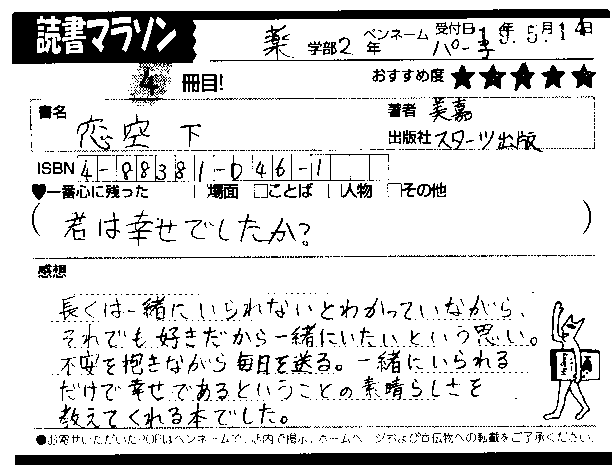 読書マラソン
薬 学部 2 年 ペンネーム パー子 受付日 19年 6月 14日
4 冊目! おすすめ度 ★★★★★
書名 恋空 下 著者 美嘉
出版社 スターツ出版
ISBN 4-88381-046-1
♥一番心に残った □場面 □ことば □人物 □その他
(君は幸せでしたか?)
感想
長くは一緒にいられないとわかっていながら、
それでも好きだから一緒にいたいという思い。
不安を抱きながら毎日を送る。一緒にいられる
だけで幸せであるということの素晴らしさを
教えてくれる本でした。
●お寄せいただいたPOPはペンネームで、店内で掲示、ホームページおよび宣伝物への転載をご了承ください。